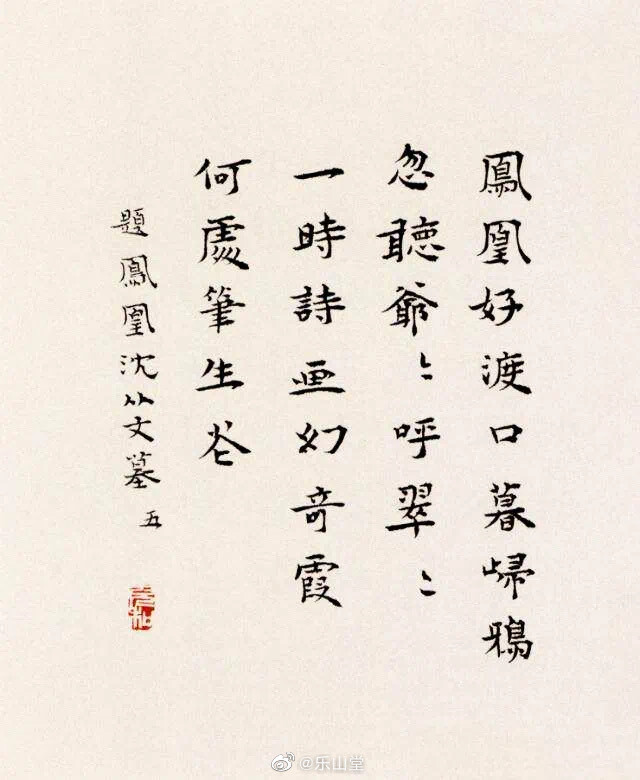 鳳凰好渡口暮歸鴉
忽聽爺〻呼翠〻
一時詩画幻奇霞
何處筆生花
題鳳凰沈从文墓 五
@乐山堂